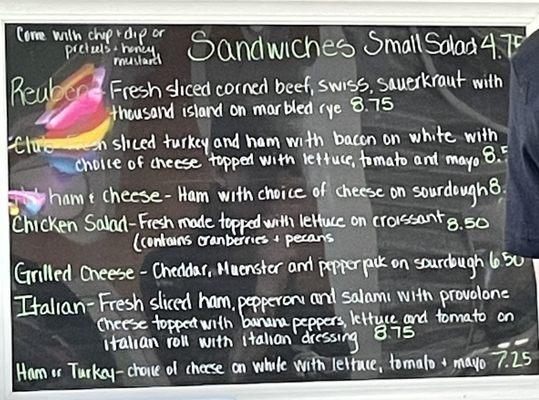 Come with chip + dip or
pretzels + honey
mustard
Sandwiches Small Salad 4.75
Reuben - Fresh sliced corned beef, swiss, sauerkraut with
thousand island on marbled rye 8.75
Club - Fresh sliced turkey and ham with bacon on white with
choice of cheese topped with lettuce, tomato and mayo 8.5
ham & cheese - Ham with choice of cheese on sourdough 8.
Chicken Salad - Fresh made topped with lettuce on croissant 8.50
(contains cranberries + pecans
Grilled Cheese - Cheddar, Muenster and pepperjack on sourdough 6.50
Italian - Fresh sliced ham, pepperoni and salami with provolone
cheese topped with banana peppers, lettuce and tomato on
italian roll with italian dressing 8.75
Ham or Turkey - choice of cheese on white with lettuce, tomato + mayo 7.25